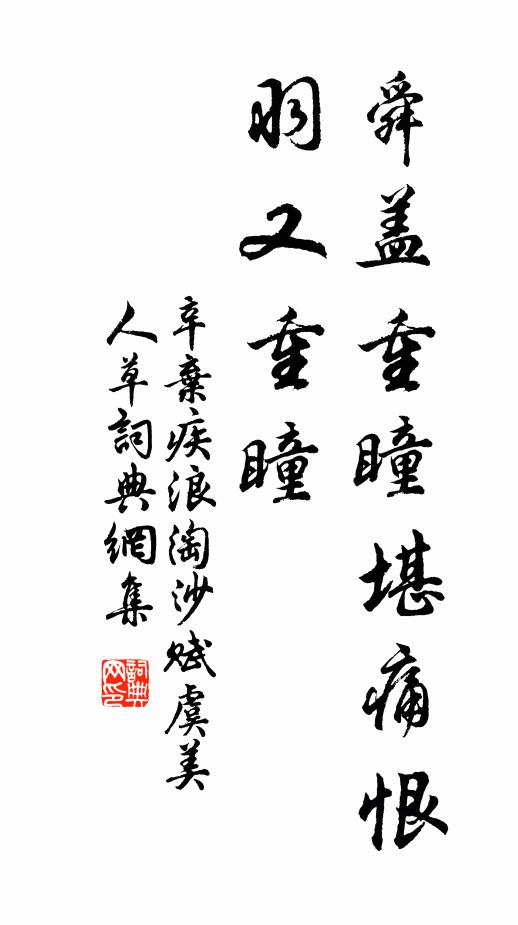 舜盖重瞳堪痛恨
羽又重瞳
辛棄疾浪淘沙賦虞美
人草詞典網集
詞典
网印